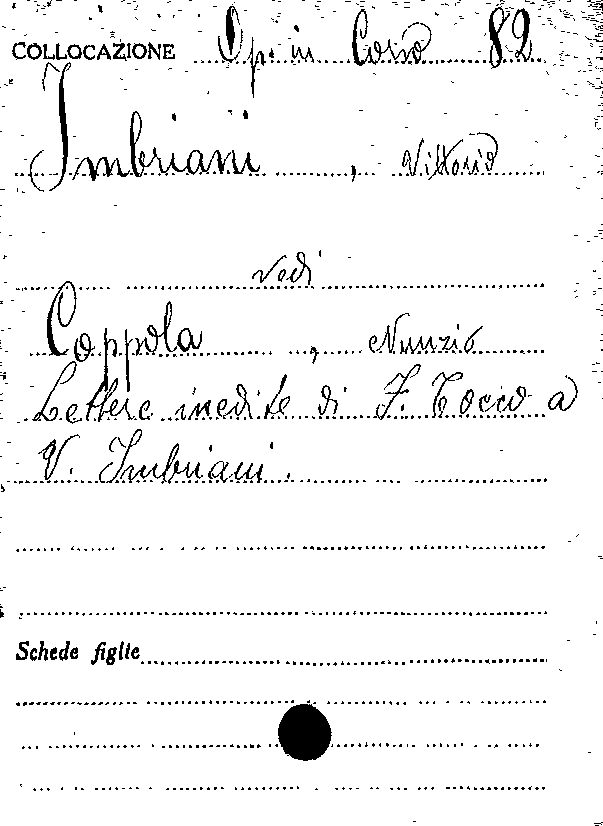 COLLOCAZIONE Op. in Corso 82
Imbriani, Vittorio
vedi
Coppola, Nunzio
Lettere inedite di F. Tocco a
V. Imbriani.
Schede figlie